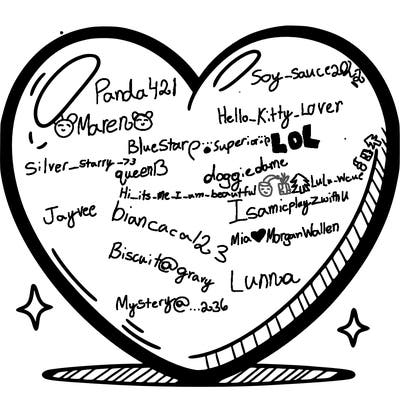 Panda421
Soy_sauce2012
Maren
Hello_Kitty_Lover
BlueStarp
superior
LOL
Silver_Starry_73
queenB
doggiedome
Hi_its_me_I_am_beautiful
Jayvee
biancaca123
Isamicplayzwithu
Mia MorganWallen
Biscuit@gravy
Lunna
Mystery@...2036